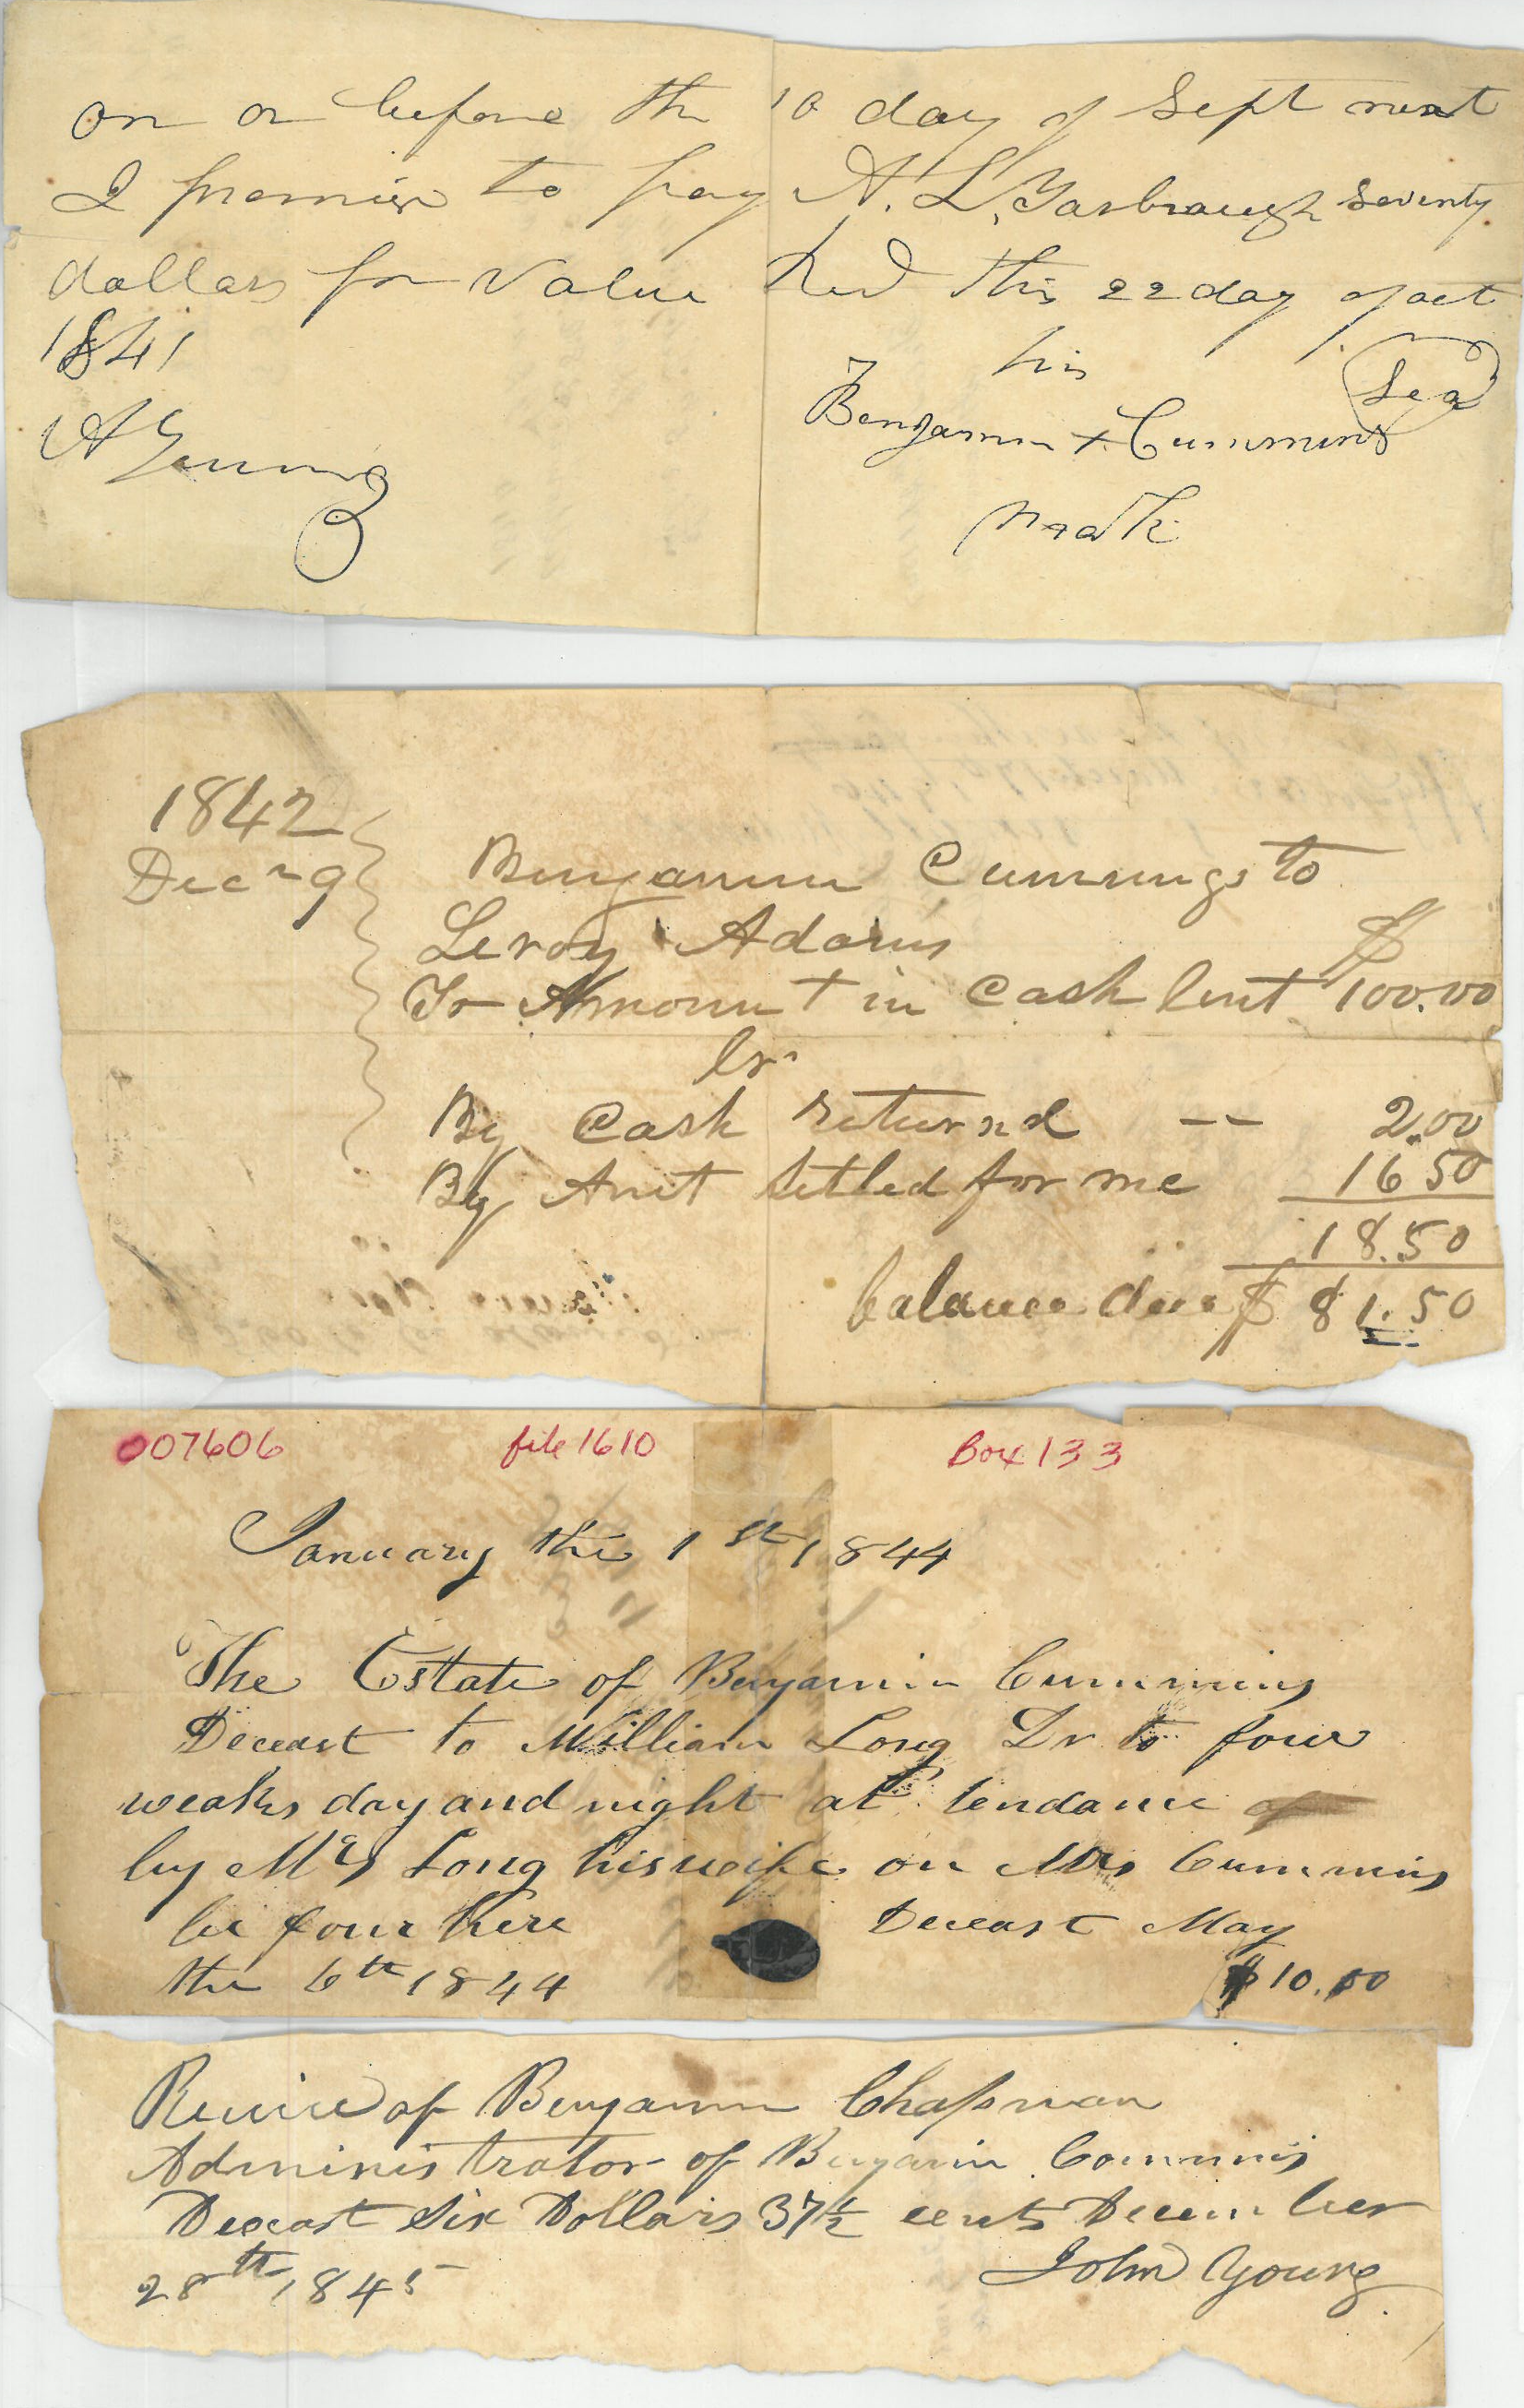 on or before the 10 day of Sept next
I promise to pay A. L. Yarbraugh Seventy
dollars for Value Recd this 22 day of oct
1841
his
Seal
A Young
Benjamin + Cummins
mark
1842
Decr 9
Benjamin Cummings to
Leroy Adams
$
To Ammount in Cash lent 100.00
Cr
By Cash returnd -- 2.00
By Amt setled for me 16 50
18.50
balance due $ 81.50
007606 file 1610 Box 133
January the 1st 1844
The Estate of Benjamin Cummins
Deceast to William Long Dr to four
weaks day and night at tendance
by Mrs Long his wife on Mrs Cummins
be four here Deceast May
the 6th 1844 $10.00
Receivd of Benjamin Chapman
Administrator of Benjamin Commins
Deceast Six Dollars 37½ cents December
28th 1845 John Young